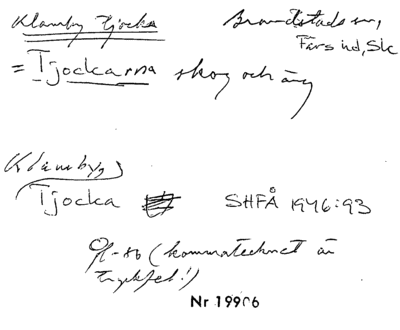 Klamby tjocka
Brandstads sn,
Färs hd, Sk
= Tjockarna skog och äng
Klamby
Tjocka
SHFÅ 1946:93
(kommatecknet är
tryckfel!)
Nr 19906